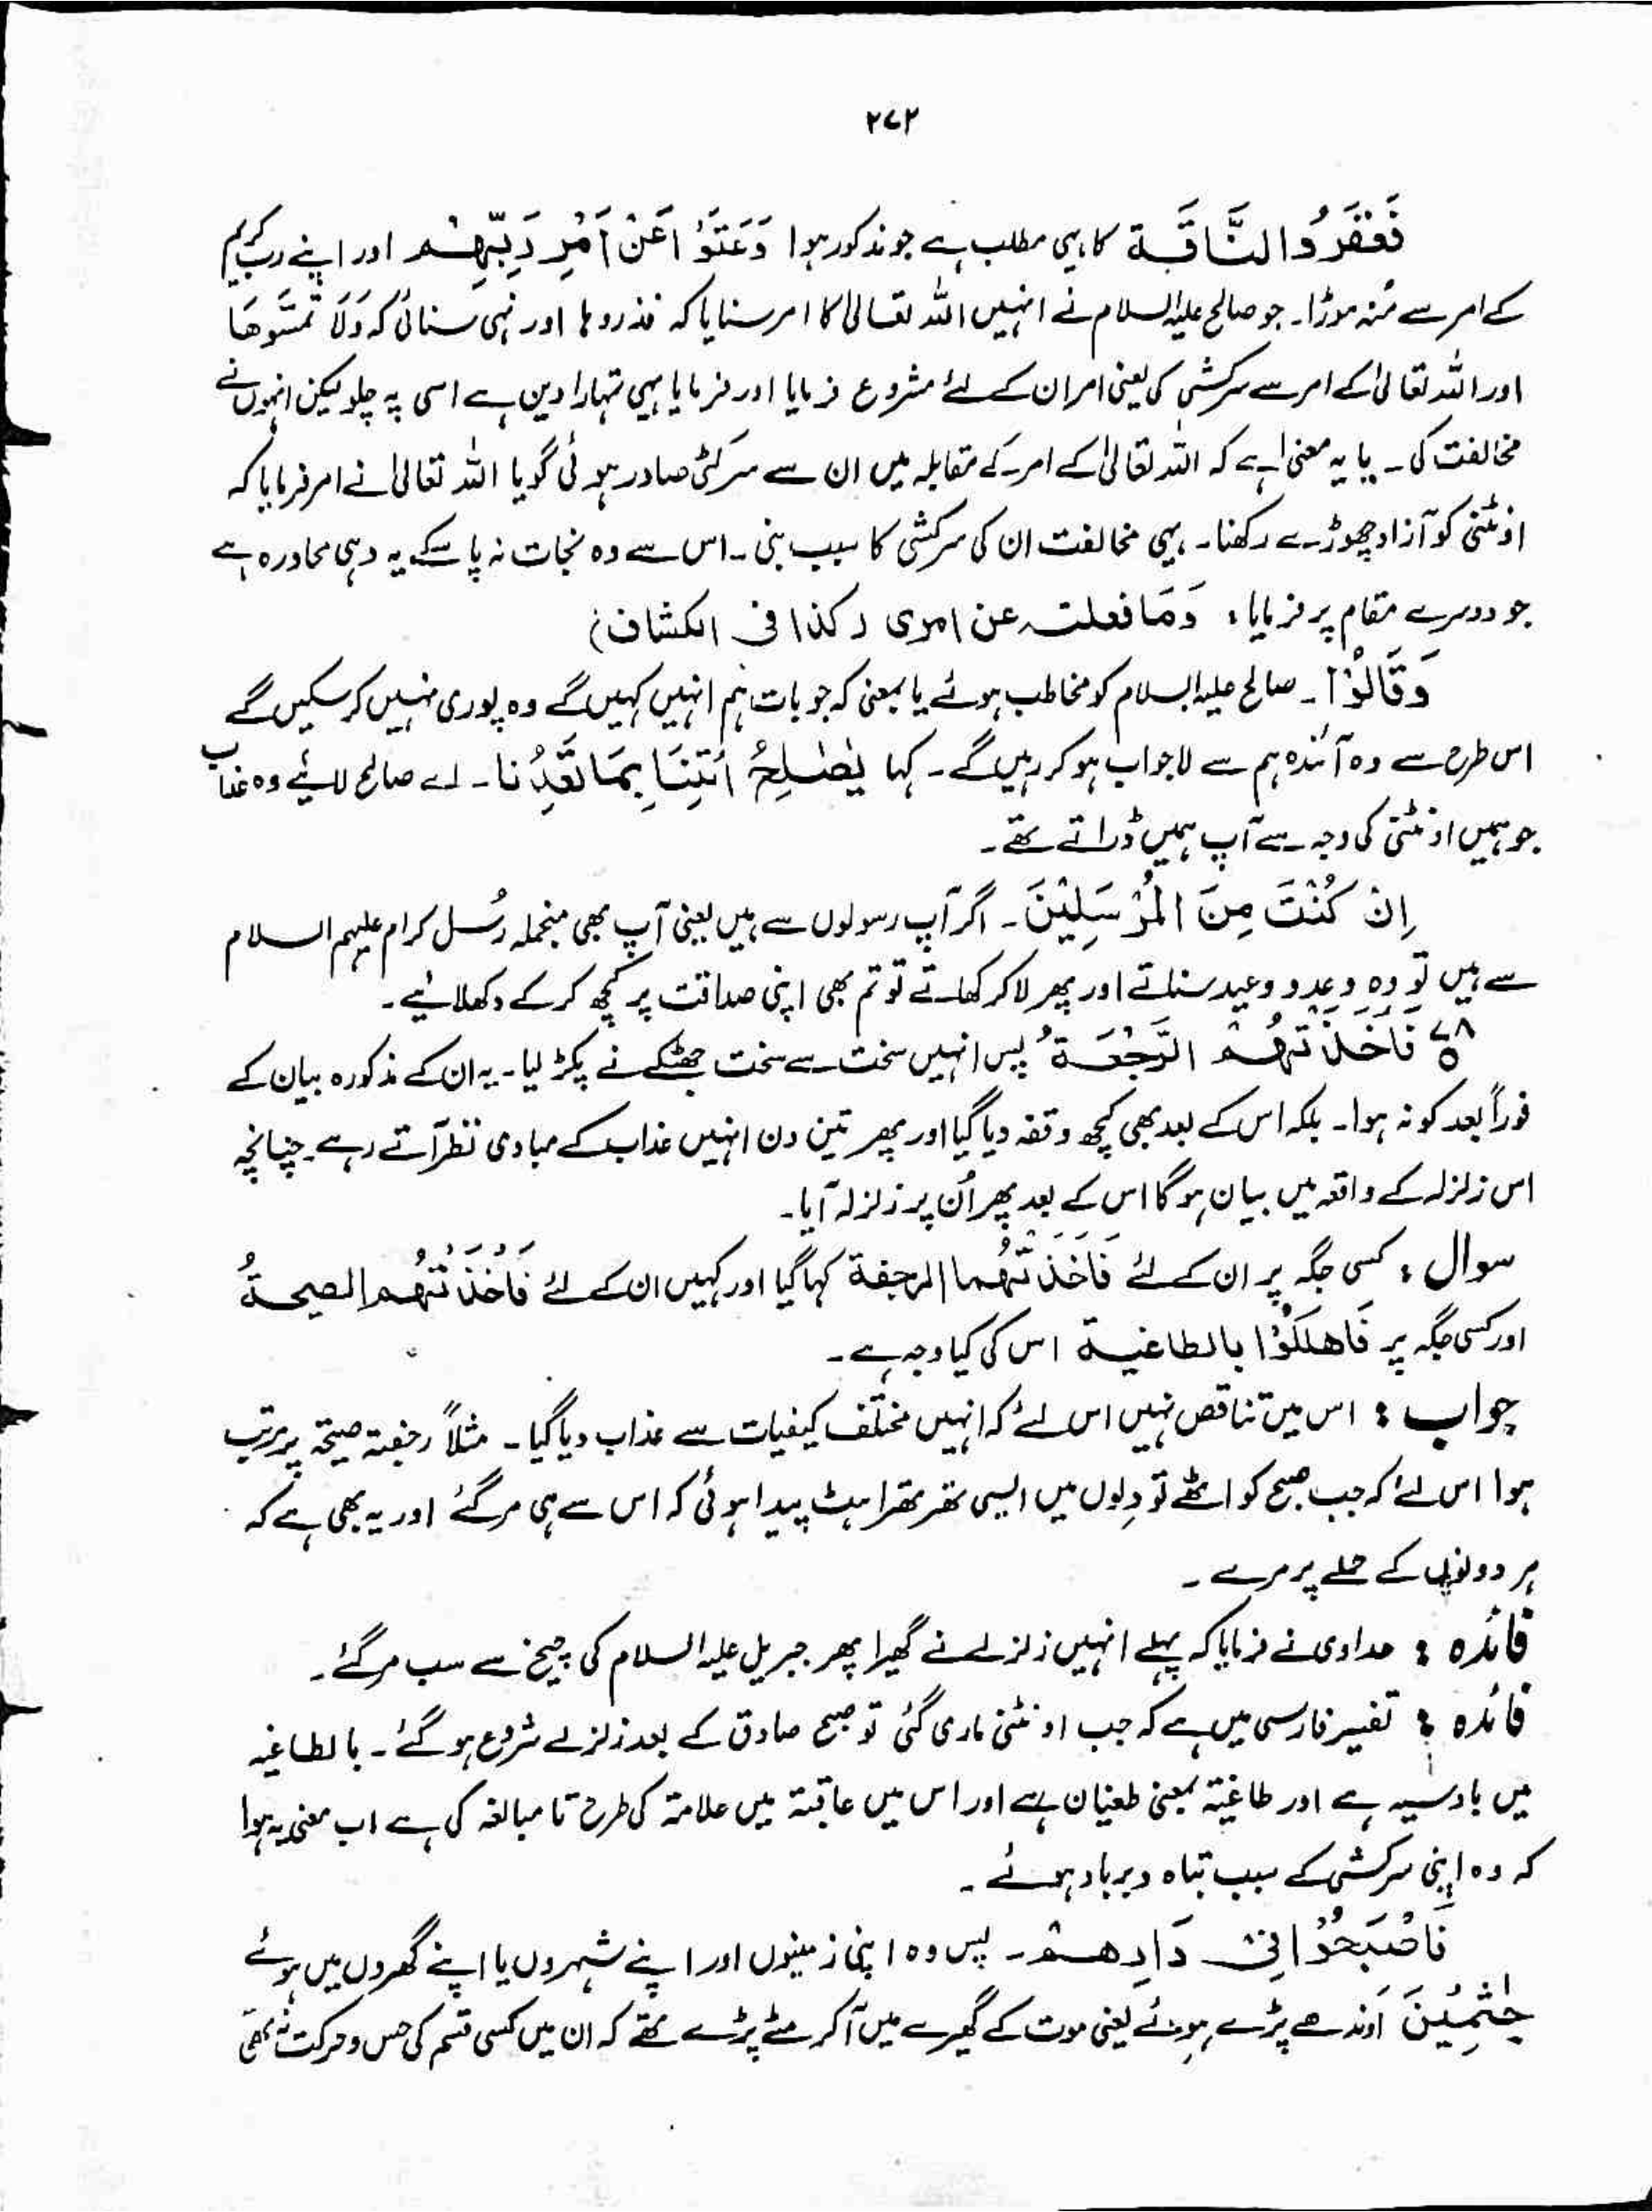 ۲۷۲
فَعَقَرُوا النَّاقَة کا یہی مطلب ہے جو مذکور ہوا وَعَتَوْا عَنْ اَمْرِ رَبِّهِمْ اور اپنے رب کریم
کے امر سے مُنہ موڑا۔ جو صالح علیہ السلام نے انہیں اللہ تعالیٰ کا امر سنایا کہ فذروہا اور نہی سنائی کہ وَلَا تَمَسُّوهَا
اور اللہ تعالیٰ کے امر سے سرکشی کی یعنی امر ان کے لئے مشروع فرمایا اور فرمایا یہی تمہارا دین ہے اسی پہ چلو لیکن انہوں نے
مخالفت کی۔ یا یہ معنیٰ ہے کہ اللہ تعالیٰ کے امر کے مقابلہ میں ان سے سرکشی صادر ہوئی گویا اللہ تعالیٰ نے امر فرمایا کہ
اونٹنی کو آزاد چھوڑے رکھنا۔ یہی مخالفت ان کی سرکشی کا سبب بنی۔ اس سے وہ نجات نہ پا سکے یہ وہی محاورہ ہے
جو دوسرے مقام پر فرمایا، وَمَا فعلتہ عن امری (کذا فی الکشاف)
وَقَالُوْا۔ صالح علیہ السلام کو مخاطب ہوئے یا بمعنی کہ جو بات ہم انہیں کہیں گے وہ پوری نہیں کر سکیں گے
اس طرح سے وہ آئندہ ہم سے لاجواب ہو کر رہیں گے۔ کہا یٰصٰلِحُ ائْتِنَا بِمَا تَعِدُنَا۔ اے صالح لائیے وہ عذاب
جو ہمیں اونٹنی کی وجہ سے آپ ہمیں ڈراتے تھے۔
اِنْ كُنْتَ مِنَ الْمُرْسَلِيْنَ۔ اگر آپ رسولوں سے ہیں یعنی آپ بھی منجملہ رُسل کرام علیہم السلام
سے ہیں تو وہ وعدو وعید سناتے اور پھر لا کر کھاتے تو تم بھی اپنی صداقت پر کچھ کر کے دکھلائیے۔
۷۸ فَاَخَذَتْهُمُ الرَّجْفَةُ پس انہیں سخت سے سخت جھٹکے نے پکڑ لیا۔ یہ ان کے مذکورہ بیان کے
فوراً بعد کو نہ ہوا۔ بلکہ اس کے بعد بھی کچھ وقفہ دیا گیا اور پھر تین دن انہیں عذاب کے مبادی نظر آتے رہے۔ چنانچہ
اس زلزلہ کے واقعہ میں بیان ہوگا اس کے بعد پھر اُن پر زلزلہ آیا۔
سوال : کسی جگہ پر ان کے لئے فَاَخَذَتْهُم الرجفة کہا گیا اور کہیں ان کے لئے فَاَخَذَتْهُم الصيحةُ
اور کسی جگہ پر فَاهلكُوْا بالطاغية اس کی کیا وجہ ہے۔
جواب : اس میں تناقص نہیں اس لئے کہ انہیں مختلف کیفیات سے عذاب دیا گیا۔ مثلاً رجفۃ صیحۃ پر مرتب
ہوا اس لئے کہ جب صبح کو اٹھے تو دلوں میں ایسی تھرتھراہٹ پیدا ہوئی کہ اس سے ہی مر گئے اور یہ بھی ہے کہ
ہر دونوں کے حملے پر مرے۔
فائدہ : حدادی نے فرمایا کہ پہلے انہیں زلزلے نے گھیرا پھر جبریل علیہ السلام کی چیخ سے سب مر گئے۔
فائدہ : تفسیر فارسی میں ہے کہ جب اونٹنی ماری گئی تو صبح صادق کے بعد زلزلے شروع ہو گئے۔ بالطاغیہ
میں با رسیہ ہے اور طاغیۃ بمعنی طغیان ہے اور اس میں عاقبۃ میں علامۃ کی طرح تا مبالغہ کی ہے اب معنیٰ یہ ہوا
کہ وہ اپنی سرکشی کے سبب تباہ و برباد ہوئے۔
فَاَصْبَحُوْا فِيْ دَارِهِمْ۔ پس وہ اپنی زمینوں اور اپنے شہروں یا اپنے گھروں میں ہوئے
جٰثِمِيْنَ اوندھے پڑے ہوئے یعنی موت کے گھیرے میں آ کر مٹے پڑے تھے کہ ان میں کسی قسم کی حس و حرکت نہ تھی